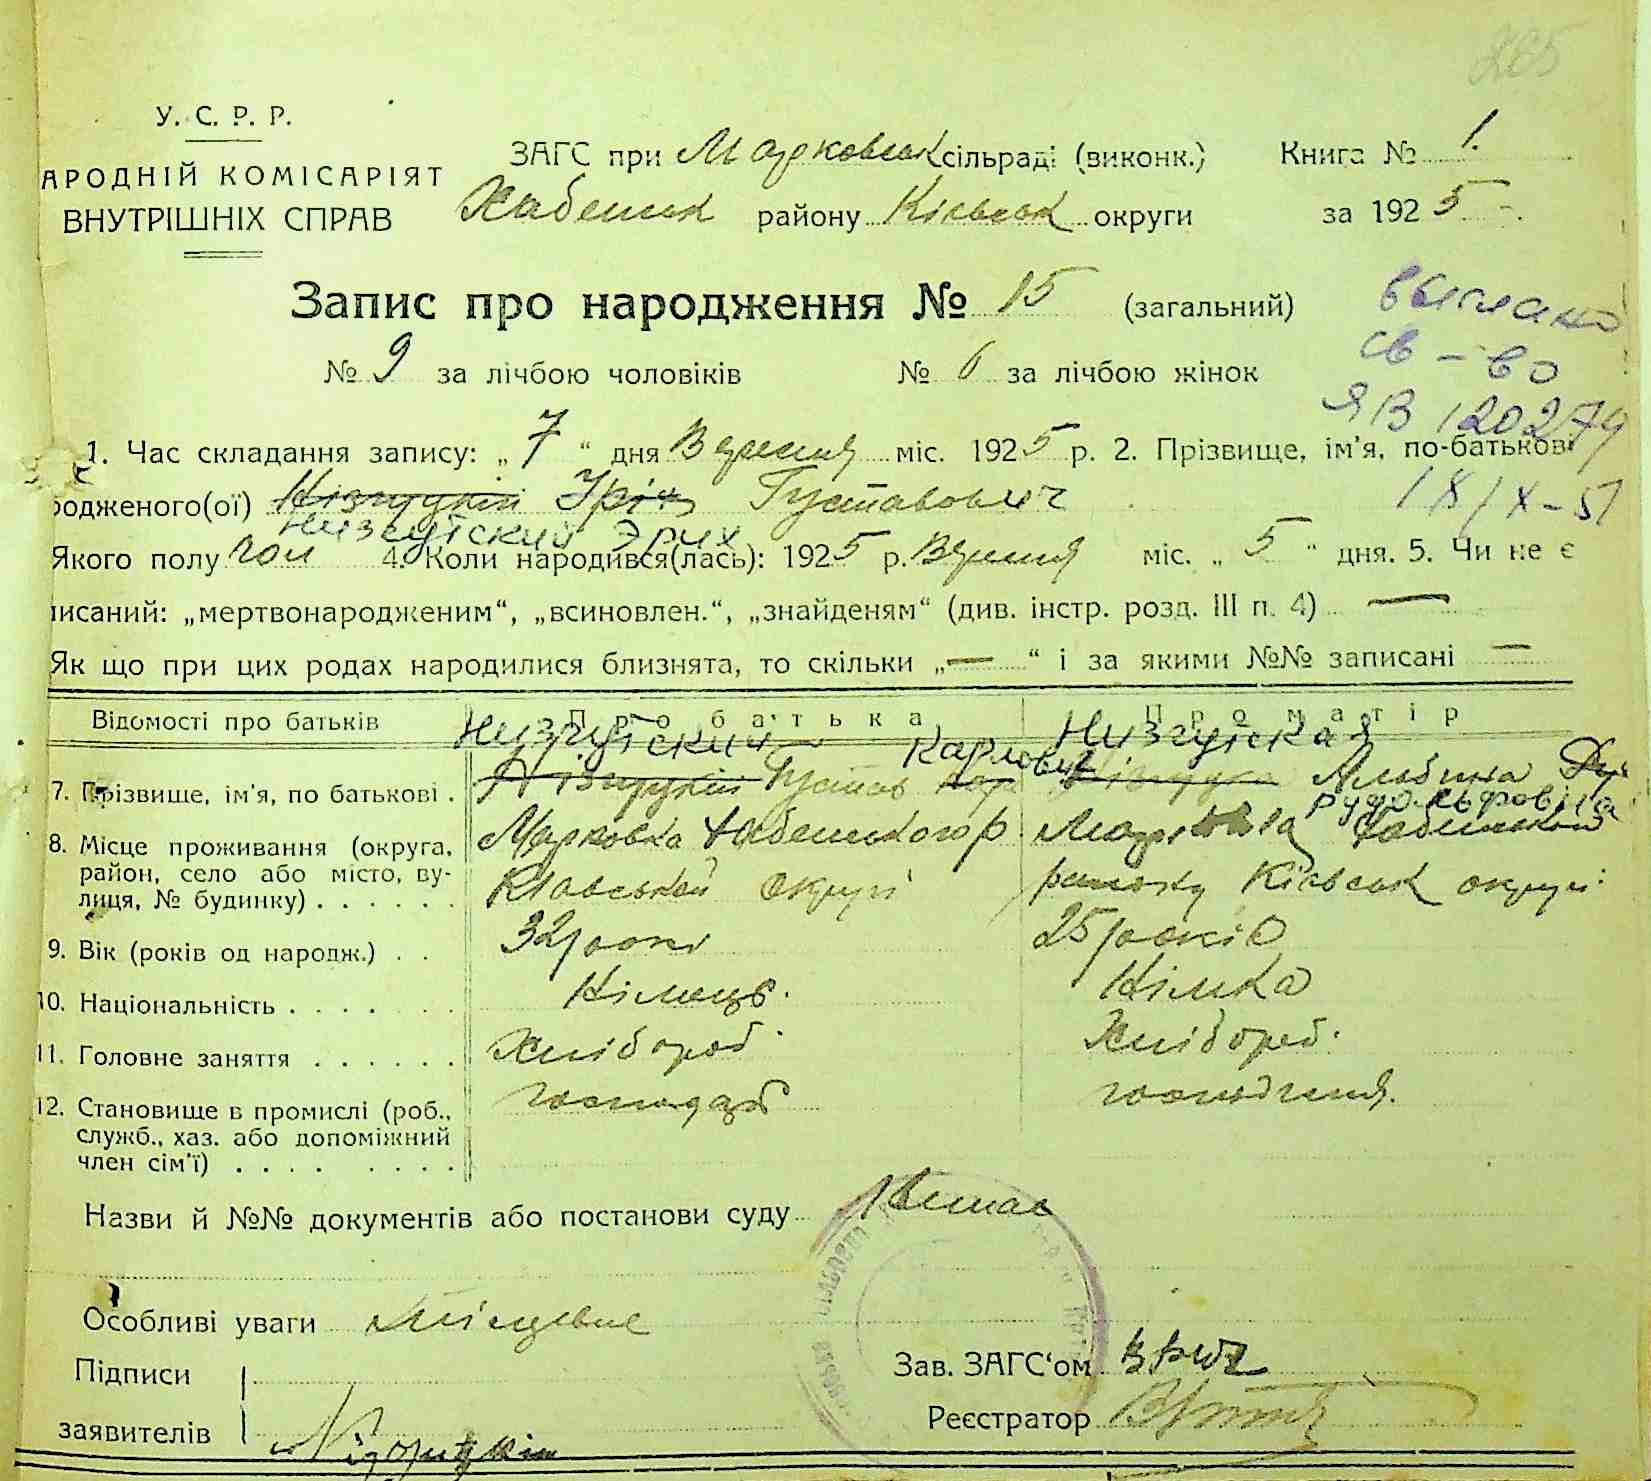 265
У. С. Р. Р.
АРОДНІЙ КОМІСАРІЯТ
ВНУТРІШНІХ СПРАВ
ЗАГС при Марковськ сільраді (виконк.) Книга № 1.
Хабенськ району Київськ округи за 1925
Запис про народження № 15 (загальний)
выслано
№ 9 за лічбою чоловіків № 6 за лічбою жінок
св-во
ЯВ 120279
1. Час складання запису: „7“ дня Вересня міс. 1925 р. 2. Прізвище, ім'я, по-батькові
одженого(ої) Нізгуцкій Еріх Густавович
18/X-51
Низгутский Эрих
Якого полу чол 4. Коли народився(лась): 1925 р. Вересня міс. „5“ дня. 5. Чи не є
писаний: „мертвонародженим“, „всиновлен.“, „знайденям“ (див. інстр. розд. III п. 4) —
Як що при цих родах народилися близнята, то скільки „—“ і за якими №№ записані —
Відомості про батьків Про батька Про матір
Низгутский Карлович Низгутская
7. Прізвище, ім'я, по батькові . Нізгуцкій Густав Кар Альбина
Рудольфовна
8. Місце проживання (округа, район, село або місто, вулиця, № будинку) . . . . . .
Марковка Хабенського р
Київської округи
Марковка Хабенського
району Київськ округи
9. Вік (років од народж.) . . 32 роки 25 років
10. Національність . . . . . . Німець. Німка
11. Головне заняття . . . . . . Хлібороб Хлібороб.
12. Становище в промислі (роб., служб., хаз. або допоміжний член сім'ї) . . . . . . . .
господар
Назви й №№ документів або постанови суду Немає
Особливі уваги Місцевие
Підписи
Зав. ЗАГС'ом
заявителів
Реєстратор